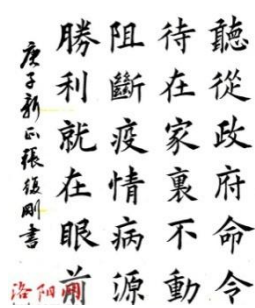 聽從政府命令
待在家裏不動
阻斷疫情病源
勝利就在眼前
庚子新正張復剛書
洛阳网